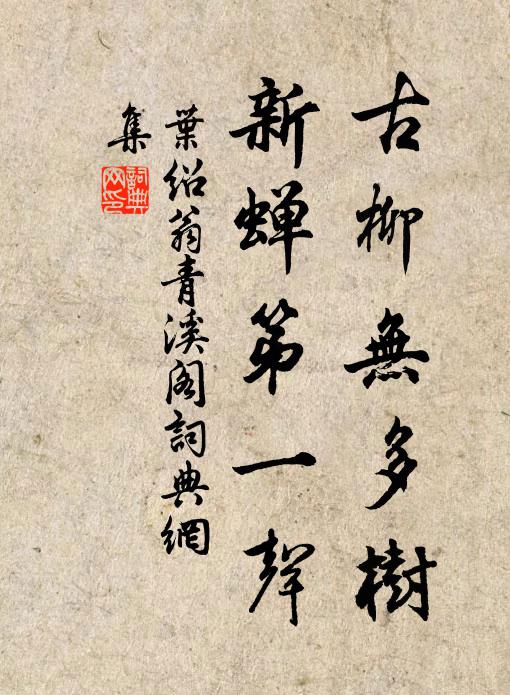 古柳無多樹
新蝉第一聲
葉紹翁青溪阁詞典網
集
詞典
网印